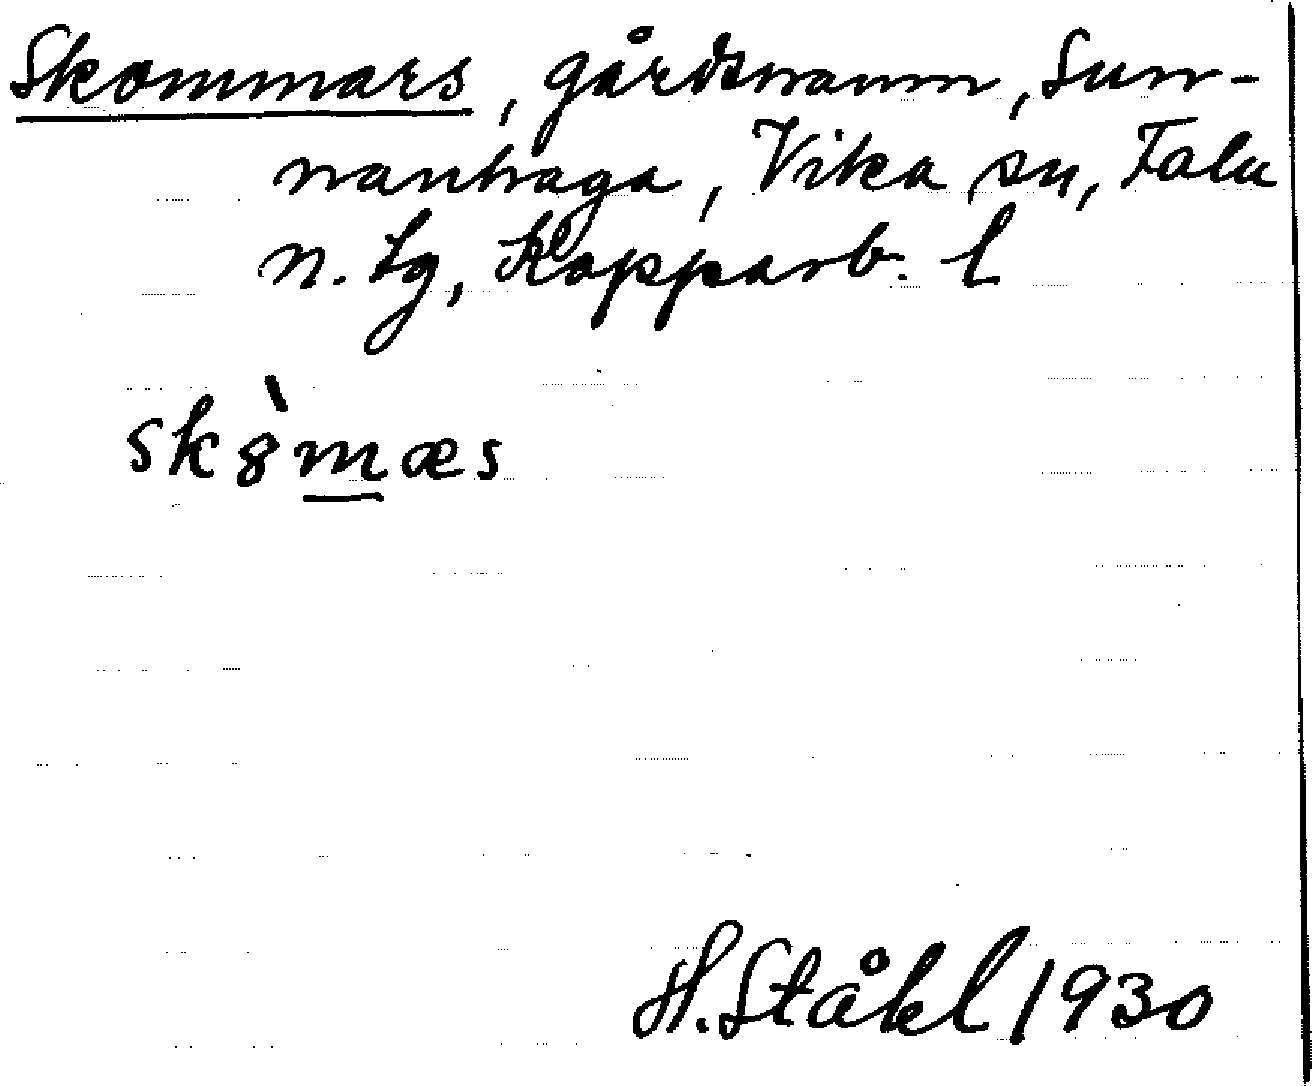 Skommars, gårdsnamn, Sun-
nanhaga, Vika sn, Falu
n. tg, Kopparb. l
sk8̀m̲æs
H. Ståhl 1930